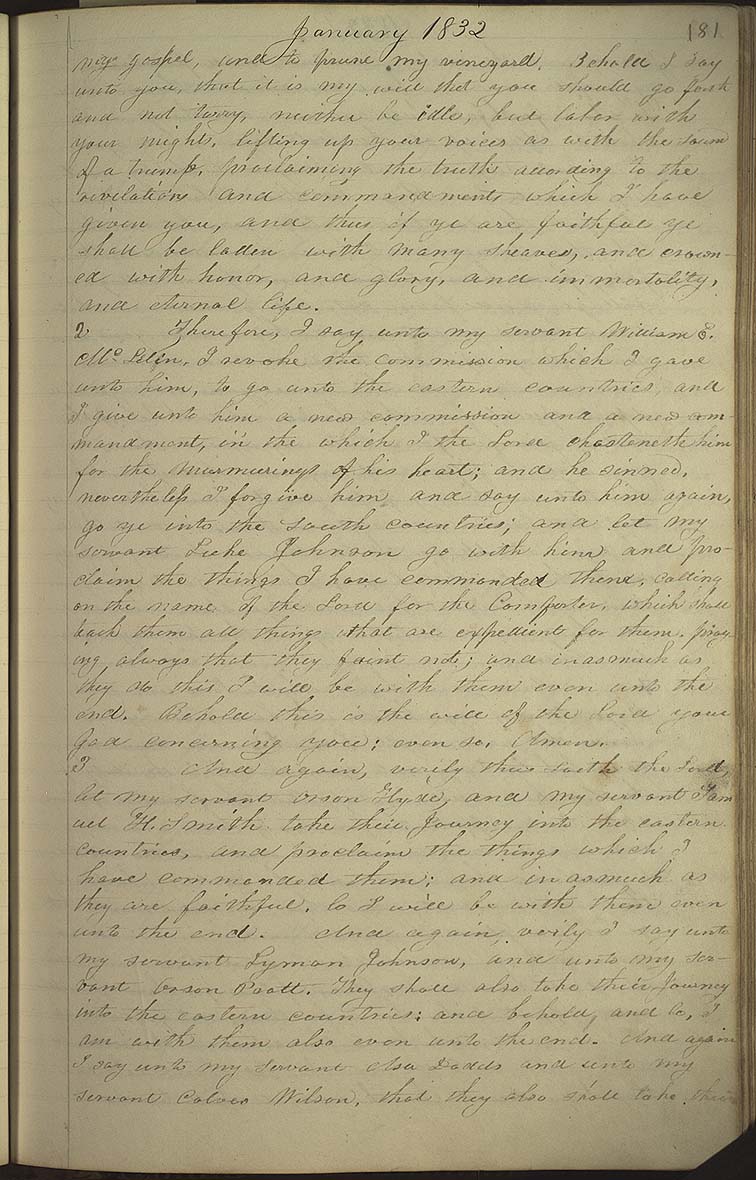 January 1832
181
my gospel, and to prune my vineyard. Behold I say
unto you, that it is my will that you should go forth
and not tarry, neither be idle, but labor with
your might, lifting up your voices as with the soun
of a trump, proclaiming the truth according to the
revelations and commandments which I have
given you, and thus if ye are faithful ye
shall be laden with many sheaves, and crown-
ed with honor, and glory, and immortality,
and eternal life.
2 Therefore, I say unto my servant William E.
Mc Lelin, I revoke the commission which I gave
unto him, to go unto the eastern countries, and
I give unto him a new commission and a new com-
mandment, in the which I the Lord chasteneth him
for the murmurings of his heart; and he sinned,
nevertheless I forgive him and say unto him again,
go ye into the south countries; and let my
servant Luke Johnson go with him and pro-
claim the things I have commanded them, calling
on the name of the Lord for the Comforter, which shall
teach them all things that are expedient for them. pray-
ing always that they faint not; and inasmuch as
they do this I will be with them even unto the
end. Behold this is the will of the Lord your
God concerning you; even so. Amen.
3 And again, verily thus saith the Lord,
let my servant Orson Hyde, and my servant Sam
uel H. Smith take their Journey into the eastern
countries, and proclaim the things which I
have commanded them; and inasmuch as
they are faithful, lo I will be with them even
unto the end. And again, verily I say unto
my servant Lyman Johnson, and unto my ser-
vant Orson Pratt. They shall also take their Journey
into the eastern countries: and behold, and lo, I
am with them also even unto the end. And again
I say unto my servant Asa Dodds and unto my
servant Calves Wilson, that they also shall take their